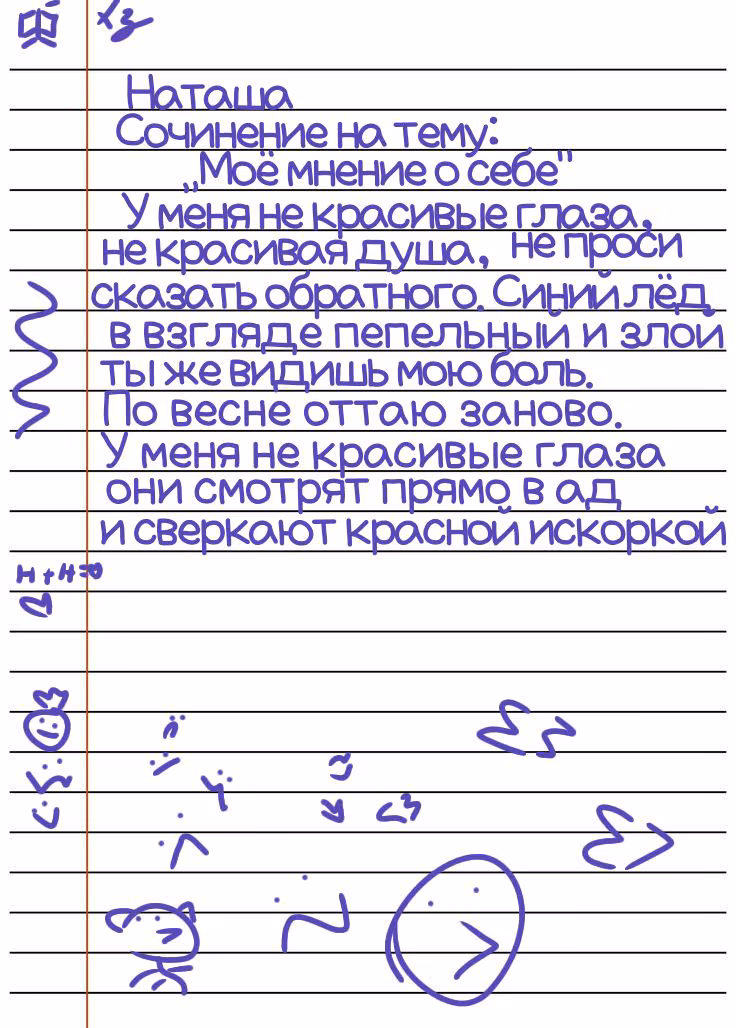 хз
Наташа
Сочинение на тему:
„Моё мнение о себе"
У меня не красивые глаза,
не красивая душа, не проси
сказать обратного. Синий лёд
в взгляде пепельный и злой
ты же видишь мою боль.
По весне оттаю заново.
У меня не красивые глаза
они смотрят прямо в ад
и сверкают красной искоркой
н+н=